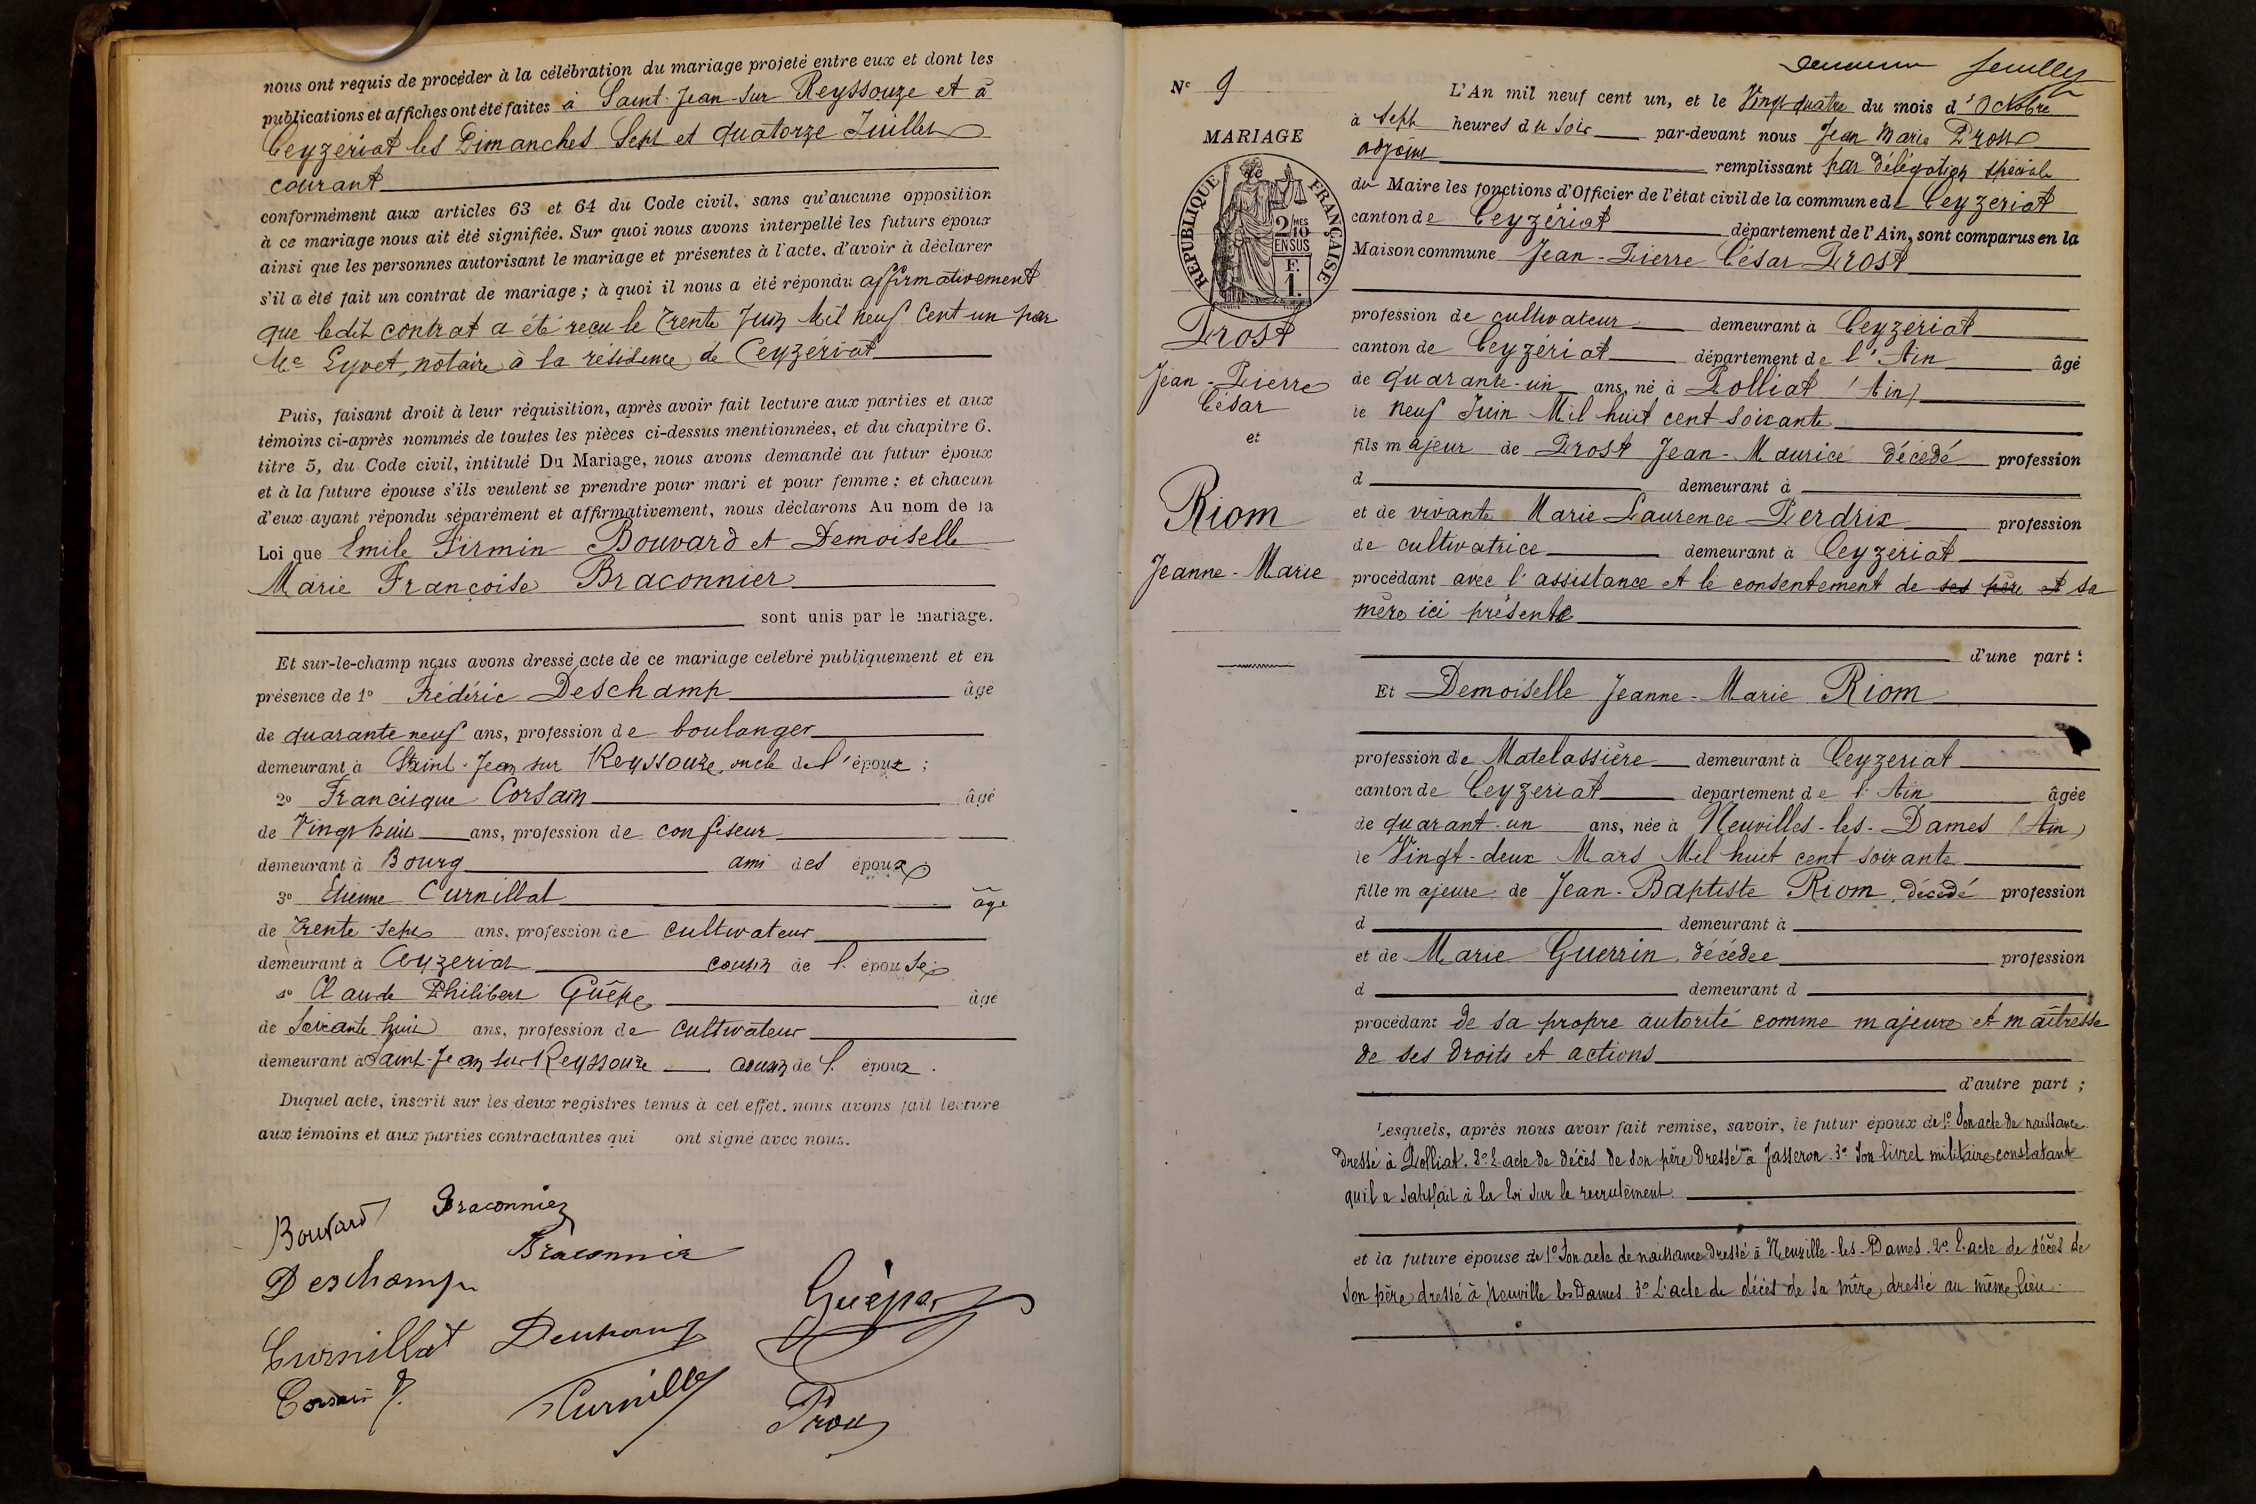 nous ont requis de procéder à la célébration du mariage projeté entre eux et dont les
publications et affiches ont été faites à Saint-Jean-sur Reyssouze et à
Ceyzériat les Dimanches Sept et quatorze Juillet
courant
conformément aux articles 63 et 64 du Code civil, sans qu'aucune opposition
à ce mariage nous ait été signifiée. Sur quoi nous avons interpellé les futurs époux
ainsi que les personnes autorisant le mariage et présentes à l'acte, d'avoir à déclarer
s'il a été fait un contrat de mariage ; à quoi il nous a été répondu affirmativement
que ledit contrat a été reçu le trente Juin Mil neuf Cent un par
Me Eyvet, notaire à la résidence de Ceyzériat
Puis, faisant droit à leur réquisition, après avoir fait lecture aux parties et aux
témoins ci-après nommés de toutes les pièces ci-dessus mentionnées, et du chapitre 6.
titre 5, du Code civil, intitulé Du Mariage, nous avons demandé au futur époux
et à la future épouse s'ils veulent se prendre pour mari et pour femme ; et chacun
d'eux ayant répondu séparément et affirmativement, nous déclarons Au nom de la
Loi que Emile Firmin Bouvard et Demoiselle
Marie Françoise Braconnier
sont unis par le mariage.
Et sur-le-champ nous avons dressé acte de ce mariage célébré publiquement et en
présence de 1º Frédéric Deschamp âgé
de quarante neuf ans, profession de boulanger
demeurant à Saint-Jean sur Reyssouze, oncle de l'époux ;
2º Francisque Corsain âgé
de Vingt huit ans, profession de confiseur
demeurant à Bourg ami des époux ;
3º Etienne Curnillat âgé
de Trente-sept ans, profession de cultivateur
demeurant à Ceyzeriat cousin de l'épouse ;
4º Claude Philibert Guêpe âgé
de soixante huit ans, profession de cultivateur
demeurant à Saint-Jean sur Reyssouze cousin de l'époux .
Duquel acte, inscrit sur les deux registres tenus à cet effet, nous avons fait lecture
aux témoins et aux parties contractantes qui ont signé avec nous.
Bouvard Braconnier
Braconnier
Deschamp
Guépe
Curnillat
Corsain
Curnillat
Prost
Nº 9
MARIAGE
REPUBLIQUE FRANÇAISE
2/10 MES
EN SUS
F.
1.
Prost
Jean-Pierre
César
et
Riom
Jeanne-Marie
L'An mil neuf cent un, et le Vingt quatre du mois d'Octobre
à Sept heures du Soir par-devant nous Jean Marie Prost
adjoint remplissant par délégation spéciale
du Maire les fonctions d'Officier de l'état civil de la commune de Ceyzeriat
canton de Ceyzériat département de l'Ain, sont comparus en la
Maison commune Jean-Pierre César Prost
profession de cultivateur demeurant à Ceyzeriat
canton de Ceyzériat département de l'Ain âgé
de quarante-un ans, né à Polliat (Ain)
le neuf Juin Mil huit cent soixante
fils majeur de Prost Jean-Maurice décédé profession
d demeurant à
et de vivante Marie Laurence Perdrix profession
de cultivatrice demeurant à Ceyzériat
procédant avec l'assistance et le consentement de ses père et sa
mère ici présente
d'une part ;
Et Demoiselle Jeanne-Marie Riom
profession de Matelassière demeurant à Ceyzeriat
canton de Ceyzeriat département de l'Ain âgée
de quarant-un ans, née à Neuvilles-les-Dames (Ain)
le Vingt-deux Mars Mil huit cent soixante
fille majeure de Jean-Baptiste Riom, décédé profession
d demeurant à
et de Marie Guerrin, décédée profession
d demeurant d
procédant de sa propre autorité comme majeure et maîtresse
de ses droits et actions
d'autre part ;
Lesquels, après nous avoir fait remise, savoir, le futur époux de 1º Son acte de naissance
dressé à Polliat. 2º L'acte de décès de son père dressé à Jasseron. 3º Son livret militaire constatant
qu'il a satisfait à la loi sur le recrutement.
et la future épouse de 1º Son acte de naissance dressé à Neuville-les-Dames. 2º L'acte de décès de
son père dressé à Neuville les Dames 3º L'acte de décès de sa mère dressé au même lieu.